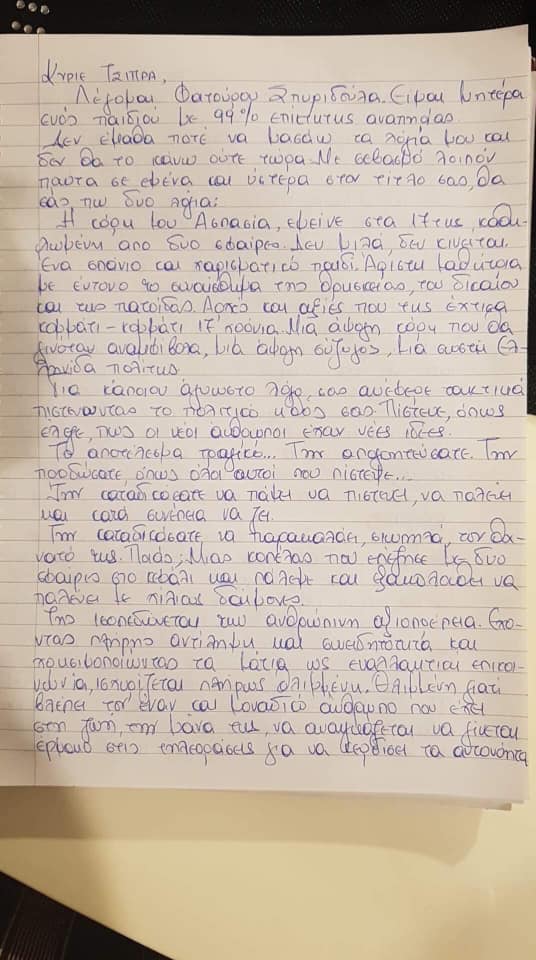 Κύριε ΤΣΙΠΡΑ,
Λέγομαι Φατούρου Σπυριδούλα. Είμαι μητέρα
ενός παιδιού με 99% επίκτητης αναπηρίας.
Δεν έμαθα ποτέ να μασάω τα λόγια μου και
δεν θα το κάνω ούτε τώρα. Με σεβασμό λοιπόν
πάντα σε εμένα και ύστερα στον τίτλο σας, θα
σας πω δυο λόγια:
Η κόρη μου Ασπασία, έμεινε στα 17 της, καθη-
λωμένη από δυο σφαίρες. Δεν μιλά, δεν κινείται.
Ένα σπάνιο και χαρισματικό παιδί. Άριστη μαθήτρια
με έντονο το συναίσθημα της θρησκείας, του δικαίου
και της πατρίδας. Αρχές και αξίες που της έχτιζα
κομμάτι-κομμάτι 17 χρόνια. Μια άψογη κόρη που θα
γινόταν αναμφίβολα, μια άψογη σύζυγος, μια σωστή Ελ-
ληνίδα πολίτης.
Για κάποιον άγνωστο λόγο, σας ανέφερε τακτικά
πιστεύοντας το πολιτικό ήθος σας. Πίστευε, όπως
έλεγε, πως οι νέοι άνθρωποι έχουν νέες ιδέες.
Το αποτέλεσμα τραγικό... Την απογοητεύσατε. Την
προδώσατε, όπως όλοι αυτοί που πίστεψε...
Την καταδικάσατε να πάψει να πιστεύει, να παλεύει
και κατά συνέπεια να ζει.
Την καταδικάσατε να παρακαλάει, σιωπηλά, τον θά-
νατό της. Ποιός; Μιας κοπέλας που επέζησε με δυο
σφαίρες στο κεφάλι και πάλεψε και εξακολουθεί να
παλεύει με χίλιους δαίμονες.
Της ισοπεδώνεται την ανθρώπινη αξιοπρέπεια. Έχο-
ντας πλήρης αντίληψη και συνειδητότητα και
χρησιμοποιώντας τα μάτια ως εναλλακτική επικοι-
νωνία, ισχυρίζεται πλήρως θλιμμένη. Θλιμμένη γιατί
βλέπει τον έναν και μοναδικό άνθρωπο που έχει
στη ζωή, την μάνα της, να αναγκάζεται να γίνεται
έρμαιο στις τηλεοράσεις για να κερδίσει τα αυτονόητα